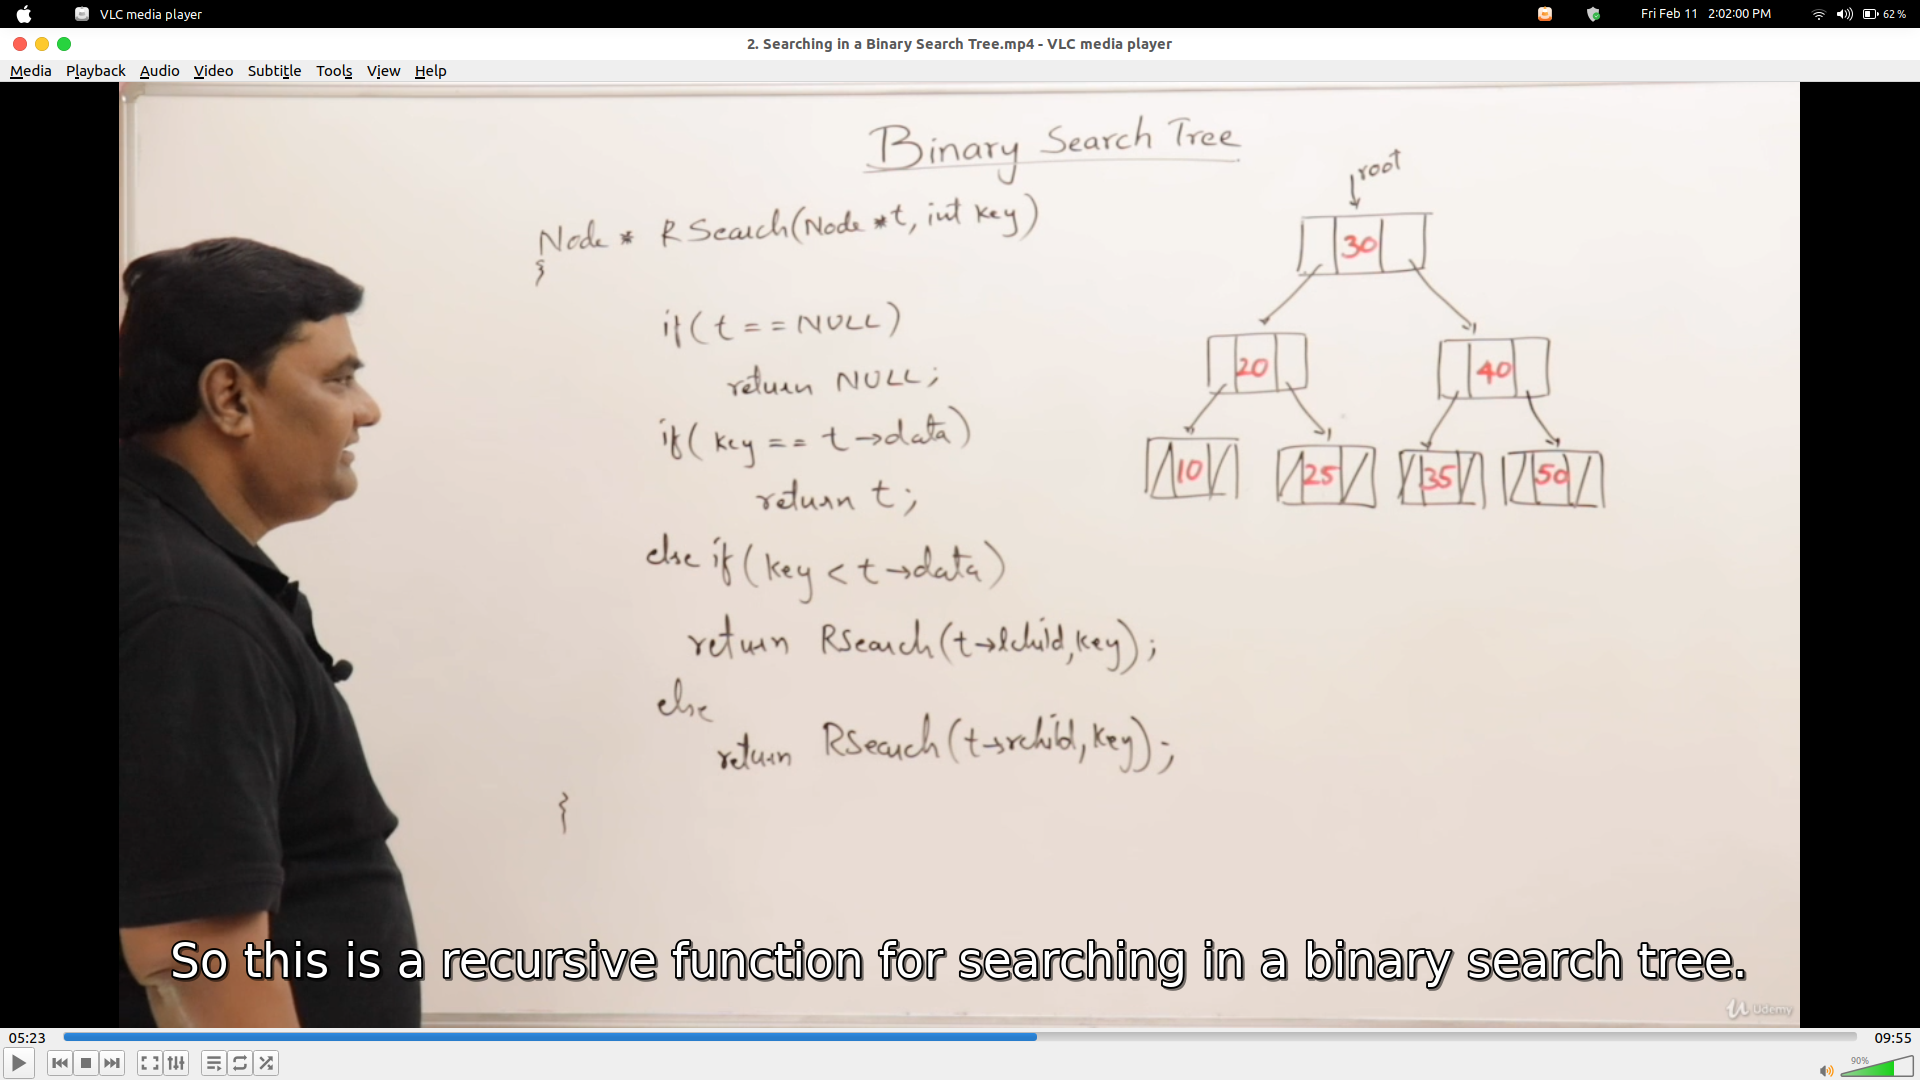 VLC media player
Fri Feb 11 2:02:00 PM
62 %
2. Searching in a Binary Search Tree.mp4 - VLC media player
Media Playback Audio Video Subtitle Tools View Help
Binary Search Tree
root
Node * RSearch(Node *t, int key)
{
if(t == NULL)
return NULL;
if(key == t→data)
return t;
else if(key < t→data)
return RSearch(t→lchild, key);
else
return RSearch(t→rchild, key);
}
30
20 40
10 25 35 50
So this is a recursive function for searching in a binary search tree.
Udemy
05:23 09:55
90%